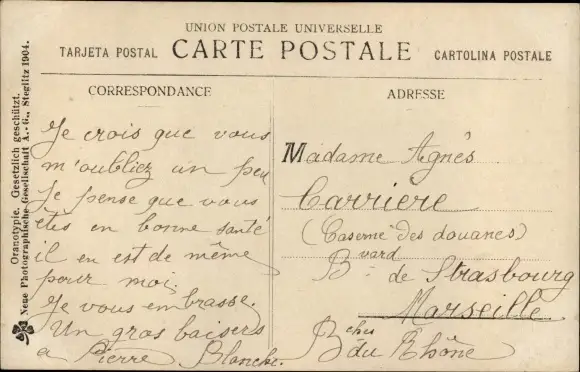 UNION POSTALE UNIVERSELLE
TARJETA POSTAL CARTE POSTALE CARTOLINA POSTALE
CORRESPONDANCE
Je crois que vous
m'oubliez un peu
Je pense que vous
êtes en bonne santé
il en est de même
pour moi.
Je vous embrasse.
Un gros baisers
a Pierre Blanche.
ADRESSE
Madame Agnès
Carriere
(Caserne des douanes)
Bvard de Strasbourg
Marseille
Bches du Rhône
Oranotypie. Gesetzlich geschützt.
Neue Photographische Gesellschaft A.-G., Steglitz 1904.